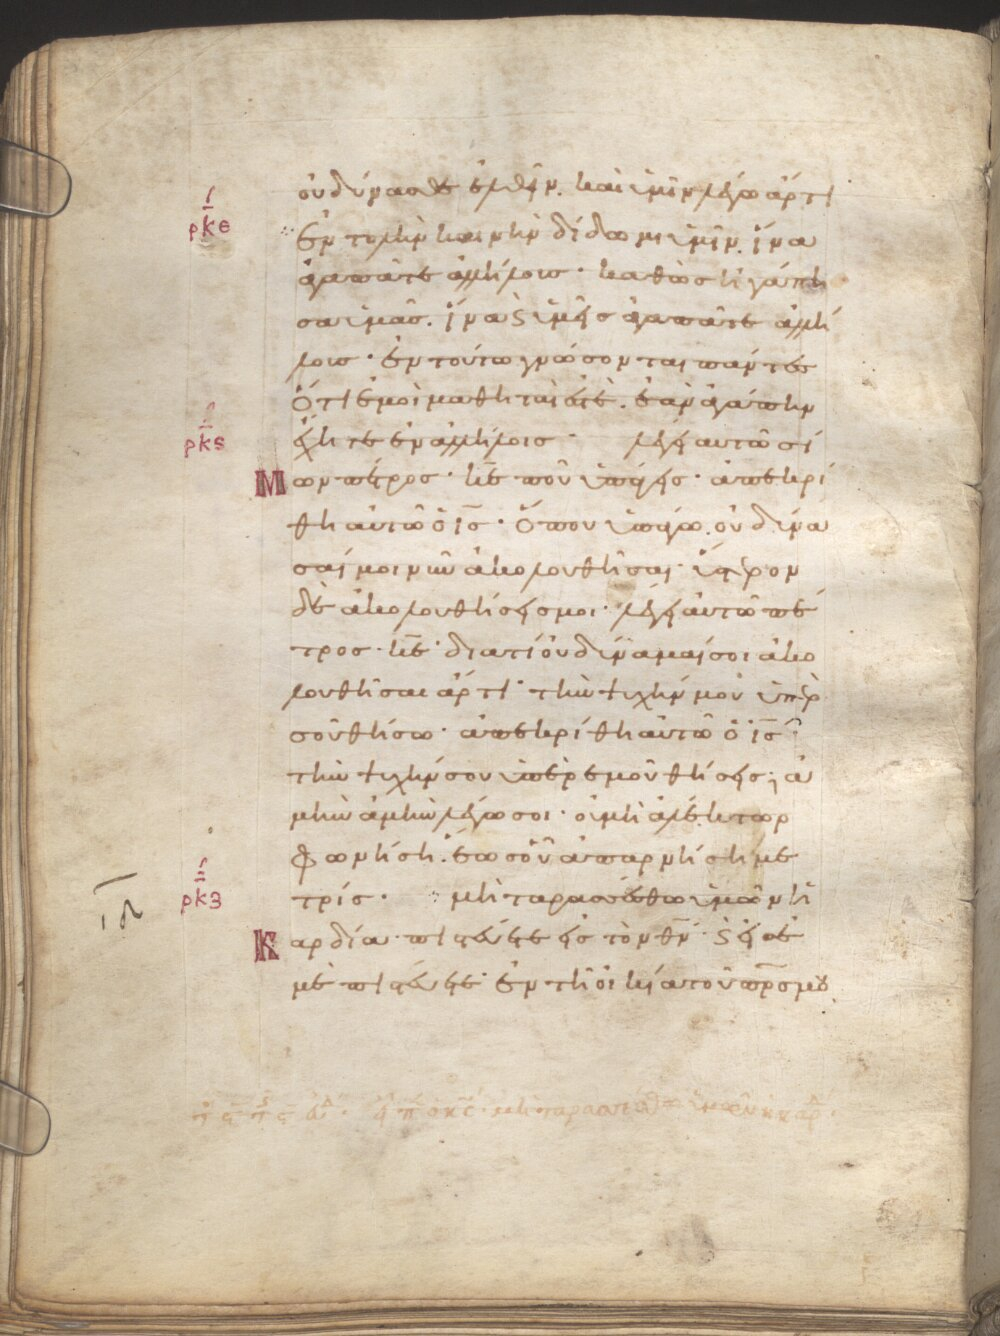 οὐ δύνασθε ἐλθεῖν. καὶ ὑμῖν λέγω ἄρτι
ρκε
ἐντολὴν καινὴν δίδωμι ὑμῖν. ἵνα
ἀγαπᾶτε ἀλλήλοισ· καθὼσ ἠγάπη
σα ὑμᾶσ. ἵνα ϗ ὑμεῖσ ἀγαπᾶτε ἀλλή
λοισ· ἐν τούτω γνώσονται πάντεσ
ὅτι ἐμοὶ μαθηταί ἐστὲ. ἐὰν ἀγάπην
ρκϛ
ἔχητε ἐν ἀλλήλοισ· λέγει αυτῶ σί
Μων πέτροσ· κ̅ε̅ ποῦ ὑπάγεισ· ἀπεκρί
θη αὐτῶ ὁ ι̅σ̅· ὅπου ὑπάγω. οὐ δύνα
σαί μοι νῦν ἀκολουθῆσαι· ὕστερον
δὲ ἀκολουθήσεισ μοι· λέγει αὐτῶ πέ
τροσ· κ̅ε̅· διατί οὐ δύναμαί σοι ἀκο
λουθῆσαι ἄρτι· τὴν ψυχήν μου ὑπὲρ
σοῦ θήσω· ἀπεκρίθη αὐτῶ ὁ ι̅σ̅·
τὴν ψυχήν σου ὑπὲρ ἐμοῦ θήσεισ; ἀ
μὴν ἀμὴν λέγω σοι· οὐ μὴ ἀλέκτωρ
φωνήση. ἕωσ οὗ ἀπαρνήση με
ρκζ
τρίσ· μὴ ταρασσέσθω ὑμῶν ἡ
ιδ
Καρδία· πιστεύετε εἰσ τὸν θ̅ν̅· ϗ εἰσ ἐ
μὲ πιστεύετε· ἐν τῆ οἰκία τοῦ π̅ρ̅σ̅ μου
μὴ ταρασσέσθω ὑμῶν ἡ καρ